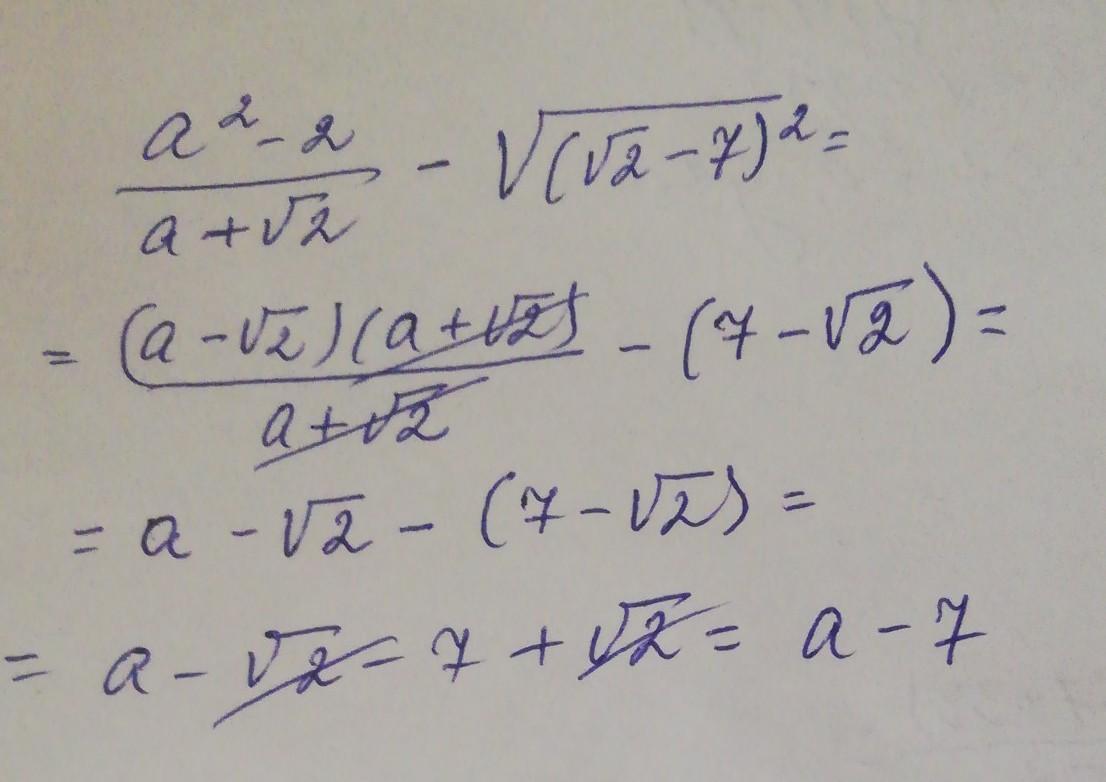 (a² - 2)/(a + √2) - √(√2 - 7)² =
= (a - √2)(a + √2)/(a + √2) - (7 - √2) =
= a - √2 - (7 - √2) =
= a - √2 - 7 + √2 = a - 7